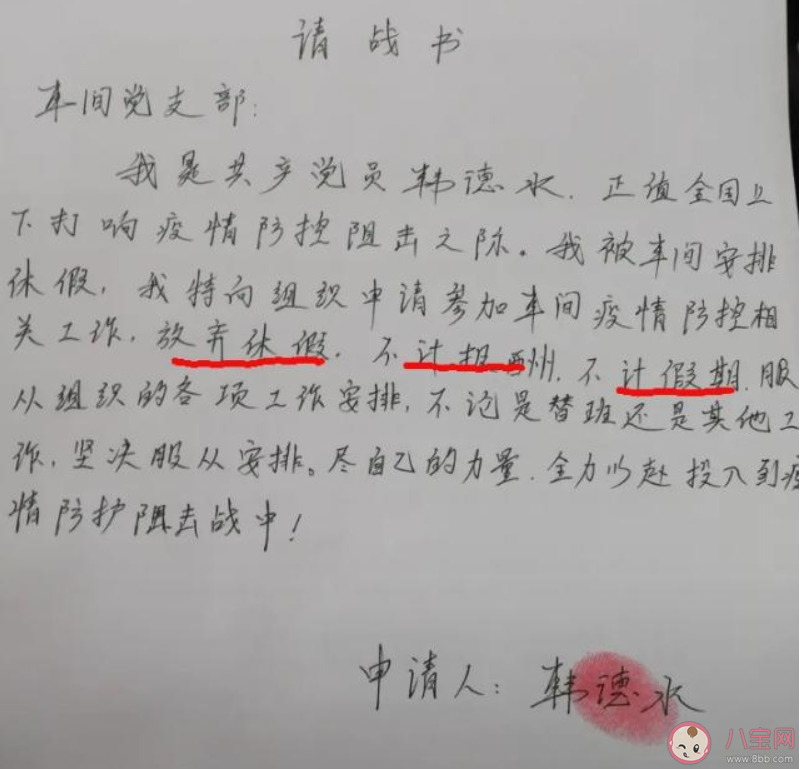 请战书
车间党支部：
我是共产党员韩德水．正值全国上
下打响疫情防控阻击之际。我被车间安排
休假，我特向组织申请参加车间疫情防控相
关工作，放弃休假．不计报酬．不计假期．服
从组织的各项工作安排，不论是替班还是其他工
作．坚决服从安排。尽自己的力量．全力以赴投入到疫
情防护阻击战中！
申请人：韩德水
八宝网
www.8bb.com